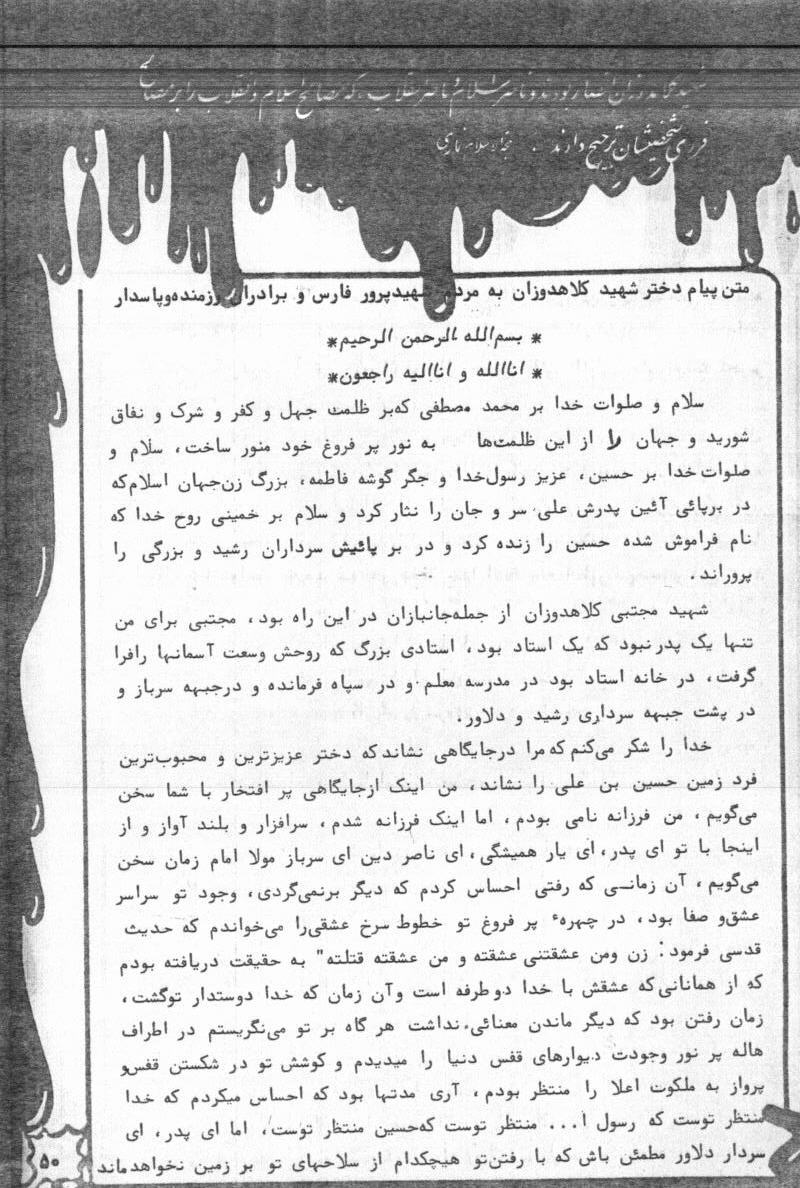 شهید کلاهدوزان انصار بودند و ناصر اسلام و ناصر انقلاب، که مصالح اسلام و انقلاب را بر مصالح
فردی شخصیشان ترجیح دادند.
متن پیام دختر شهید کلاهدوزان به مردم شهیدپرور فارس و برادران رزمنده‌وپاسدار
* بسم‌الله الرحمن الرحیم*
* اناالله و اناالیه راجعون*
سلام و صلوات خدا بر محمد مصطفی که‌بر ظلمت جهل و کفر و شرک و نفاق
شورید و جهان را از این ظلمت‌ها به نور پر فروغ خود منور ساخت، سلام و
صلوات خدا بر حسین، عزیز رسول‌خدا و جگر گوشه فاطمه، بزرگ زن‌جهان اسلام‌که
در برپائی آئین پدرش علی سر و جان را نثار کرد و سلام بر خمینی روح خدا که
نام فراموش شده حسین را زنده کرد و در بر پائیش سرداران رشید و بزرگی را
پروراند.
شهید مجتبی کلاهدوزان از جمله‌جانبازان در این راه بود، مجتبی برای من
تنها یک پدر نبود که یک استاد بود، استادی بزرگ که روحش وسعت آسمانها رافرا
گرفت، در خانه استاد بود در مدرسه معلم و در سپاه فرمانده و درجبهه سرباز و
در پشت جبهه سرداری رشید و دلاور.
خدا را شکر می‌کنم که مرا درجایگاهی نشاندکه دختر عزیزترین و محبوب‌ترین
فرد زمین حسین بن علی را نشاند، من اینک ازجایگاهی پر افتخار با شما سخن
می‌گویم، من فرزانه نامی بودم، اما اینک فرزانه شدم، سرافزار و بلند آواز و از
اینجا با تو ای پدر، ای یار همیشگی، ای ناصر دین ای سرباز مولا امام زمان سخن
می‌گویم، آن زمانــی که رفتی احساس کردم که دیگر برنمی‌گردی، وجود تو سراسر
عشق‌و صفا بود، در چهرهٔ پر فروغ تو خطوط سرخ عشقی‌را می‌خواندم که حدیث
قدسی فرمود: زن ومن عشقتنی عشقته و من عشقته قتلته" به حقیقت دریافته بودم
که از همانانی‌که عشقش با خدا دو طرفه است وآن زمان که خدا دوستدار توگشت،
زمان رفتن بود که دیگر ماندن معنائی نداشت هر گاه بر تو می‌نگریستم در اطراف
هاله پر نور وجودت دیوارهای قفس دنیا را میدیدم و کوشش تو در شکستن قفس‌و
پرواز به ملکوت اعلا را منتظر بودم، آری مدتها بود که احساس میکردم که خدا
منتظر توست که رسول ا... منتظر توست که‌حسین منتظر توست، اما ای پدر، ای
سردار دلاور مطمئن باش که با رفتن‌تو هیچکدام از سلاحهای تو بر زمین نخواهدماند
۵۰